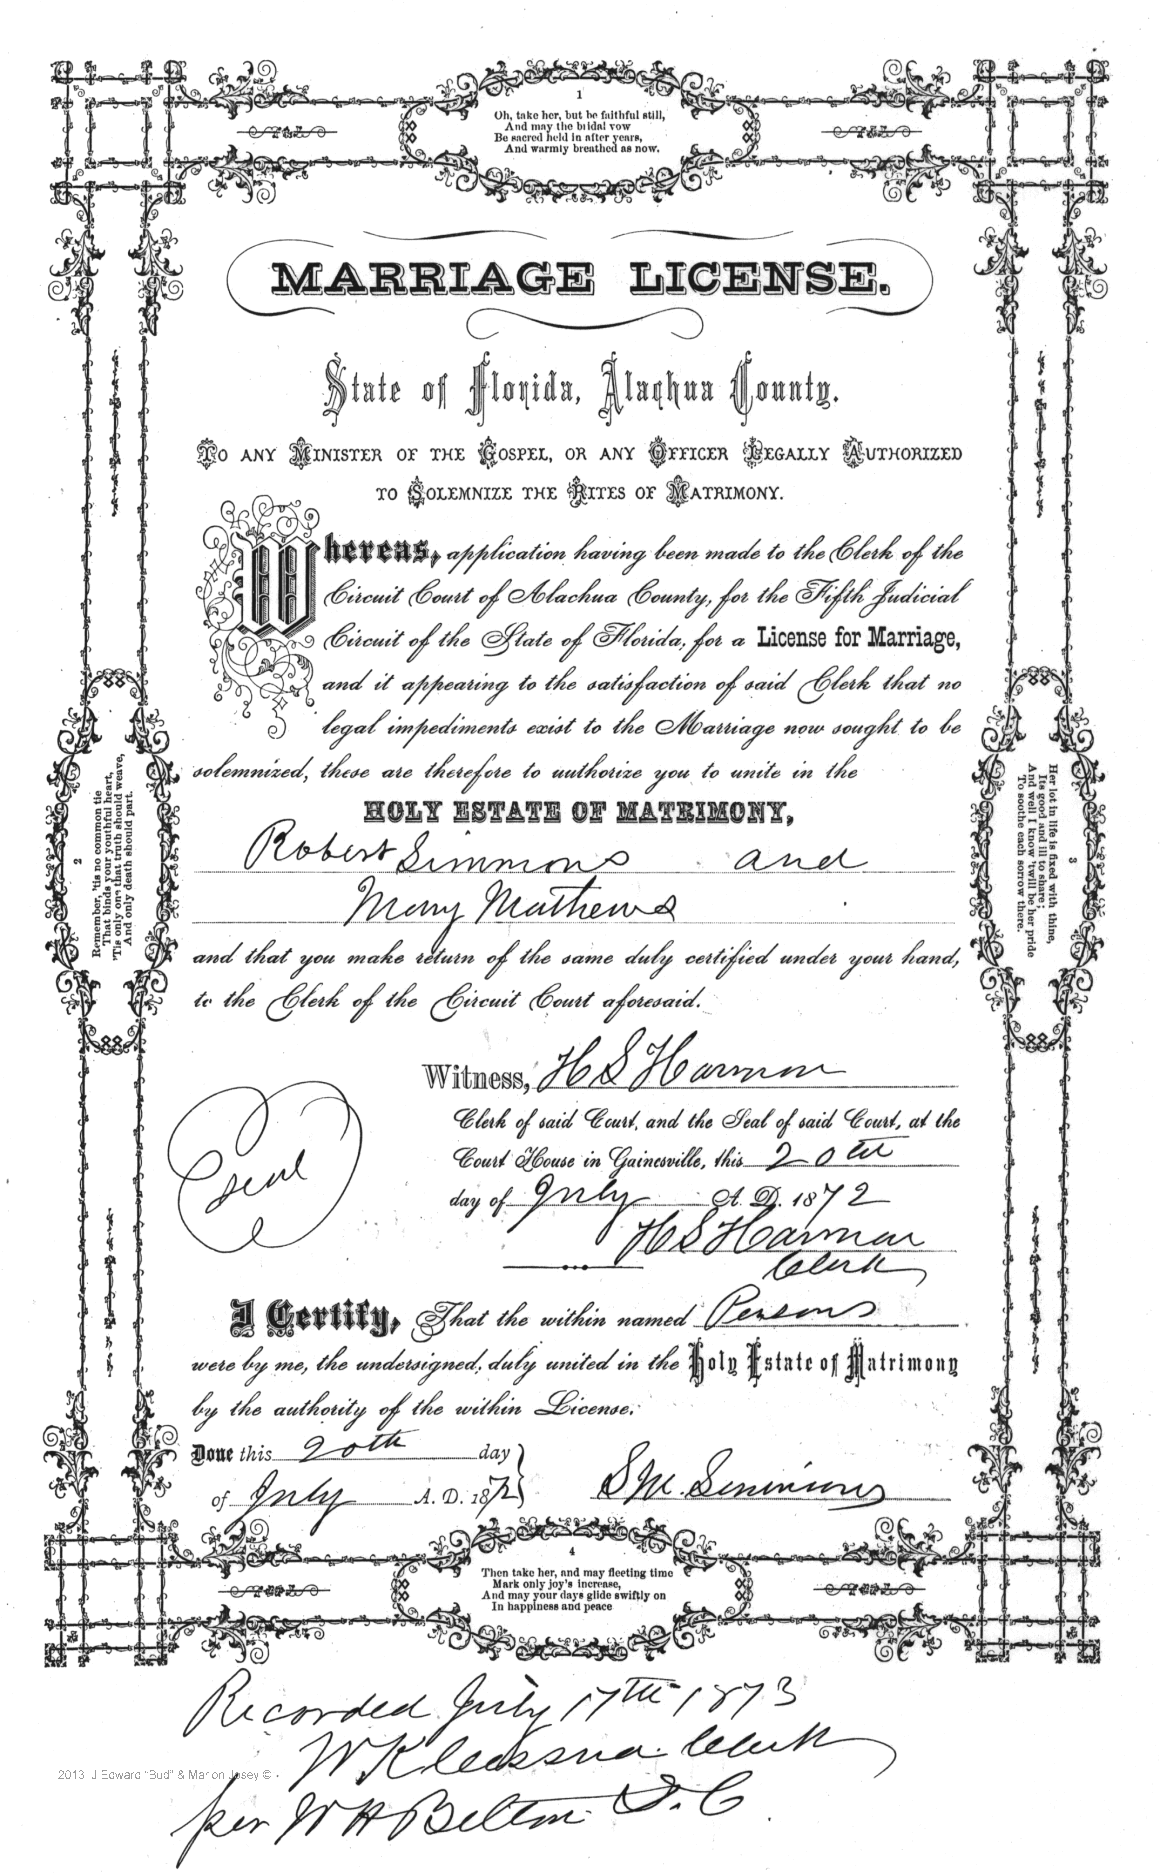 1
Oh, take her, but be faithful still,
And may the bridal vow
Be sacred held in after years,
And warmly breathed as now.
MARRIAGE LICENSE.
State of Florida, Alachua County.
TO ANY MINISTER OF THE GOSPEL, OR ANY OFFICER LEGALLY AUTHORIZED
TO SOLEMNIZE THE RITES OF MATRIMONY.
Whereas, application having been made to the Clerk of the
Circuit Court of Alachua County, for the Fifth Judicial
Circuit of the State of Florida, for a License for Marriage,
and it appearing to the satisfaction of said Clerk that no
legal impediments exist to the Marriage now sought to be
solemnized, these are therefore to authorize you to unite in the
HOLY ESTATE OF MATRIMONY,
Robert Simmons and
Mary Mathews
and that you make return of the same duly certified under your hand,
to the Clerk of the Circuit Court aforesaid.
2
Remember, 'tis no common tie
That binds your youthful heart,
'Tis only one that truth should weave,
And only death should part.
3
Her lot in life is fixed with thine,
Its good and ill to share;
And well I know 'twill be her pride
To soothe each sorrow there.
Witness, H S Harmon
Clerk of said Court, and the Seal of said Court, at the
Court House in Gainesville, this 20th
day of July A. D. 1872
Seal
H S Harmon
Clerk
I Certify, That the within named Persons
were by me, the undersigned, duly united in the Holy Estate of Matrimony
by the authority of the within License.
Done this 20th day
of July A. D. 1872
S M. Simmons
4
Then take her, and may fleeting time
Mark only joy's increase,
And may your days glide swiftly on
In happiness and peace
Recorded July 17th 1873
W K Cessna Clerk
2013 J Edward "Bud" & Marion Josey ©
per W H Belton D. C.